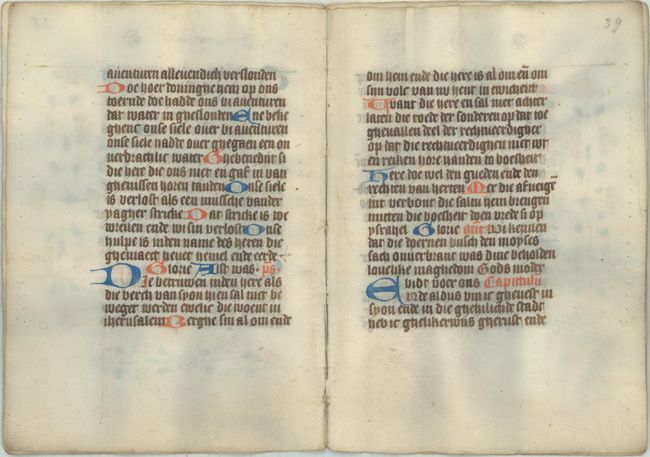 auenturen alleuendich verslonden
Doe hoer toirnighe hem op ons
toernde doe hadde ons bi auenturen
dat water in gheslonden Ene beke
ghenc onse siele ouer bi auenturen
onse siele hadde ouer ghegaen een on
verdrachlic water Ghebenedijt si
die here die ons niet en gaf in van
ghenissen horen tanden Onse siele
is verlost als een mussche vander
yagher stricke Dat stricke is to
wreuen ende wi sin verlost Onse
hulpe is inden name des heren die
ghemaect heuet hemel ende eerde
Glorie Alst was ps
Die betruwen inden here als
die berch van syon hi en sal niet be
weget werden ewelic die woent in
iherusalem Berghe sin al om ende
39
om hem ende die here is al om en om
sijn volc van nv hent in ewicheit
Want die here en sal niet achter
laten die roede der sonderen op dat loe
gheuallen deel der rechtuerdigher
op dat die rechtuerdighen niet wt
en reiken hore handen to boesheit
Here doe wel den gueden ende den
rechten van herten Mer die afneige
int verbont die salen hem brengen
mitten die boesheit doen vrede si op
ysrahel Glorie ant Wi kennen
dat die doernen busch den moyses
sach onuerbrant was dine beholden
louelike maghedom Gods moder
bidt voer ons Capitulum
Ende aldus bin ic gheuest in
syon ende in die ghehilichde stadt
heb ic ghelikerwijs gherust ende